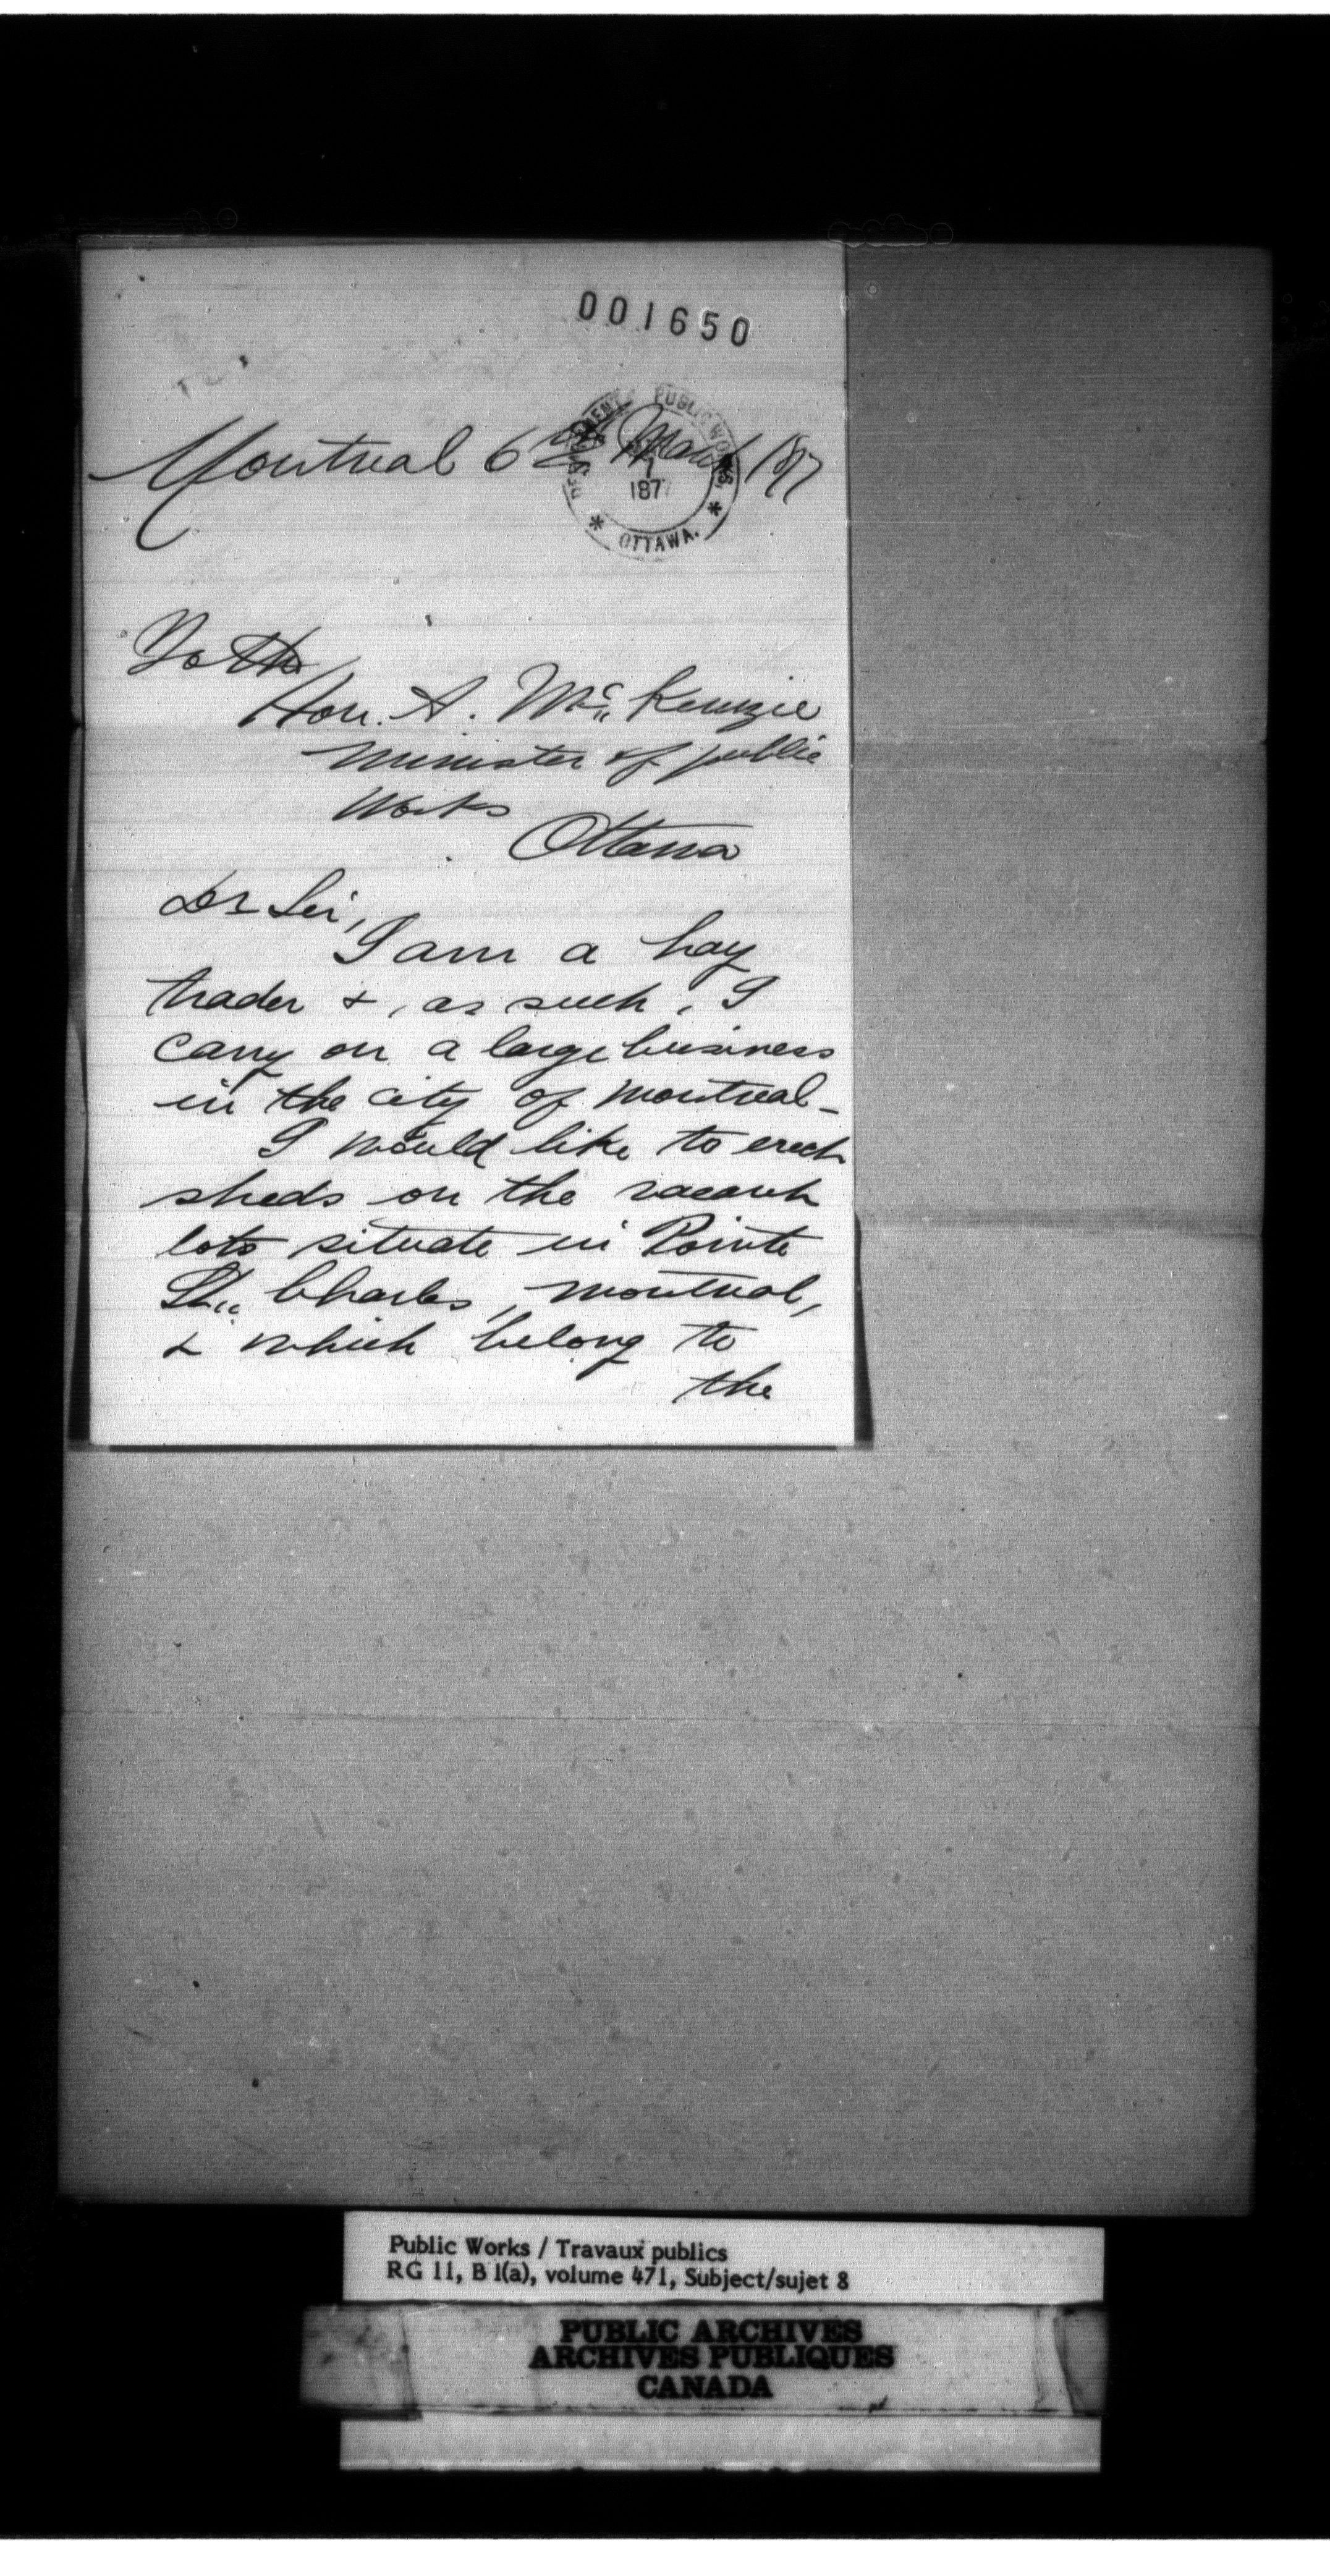 001650
Montreal 6th March 1877
DEPARTMENT PUBLIC WORKS.
1877
* OTTAWA. *
To the
Hon. A. Mc Kenzie
Minister of public
Works
Ottawa
Dr Sir,
I am a hay
trader & , as such , I
carry on a large business
in the city of Montreal -
I would like to erect
sheds on the vacant
lots situate in Pointe
St. Charles, Montreal,
& which belong to
the
Public Works / Travaux publics
RG 11, B 1(a), volume 471, Subject/sujet 8
PUBLIC ARCHIVES
ARCHIVES PUBLIQUES
CANADA